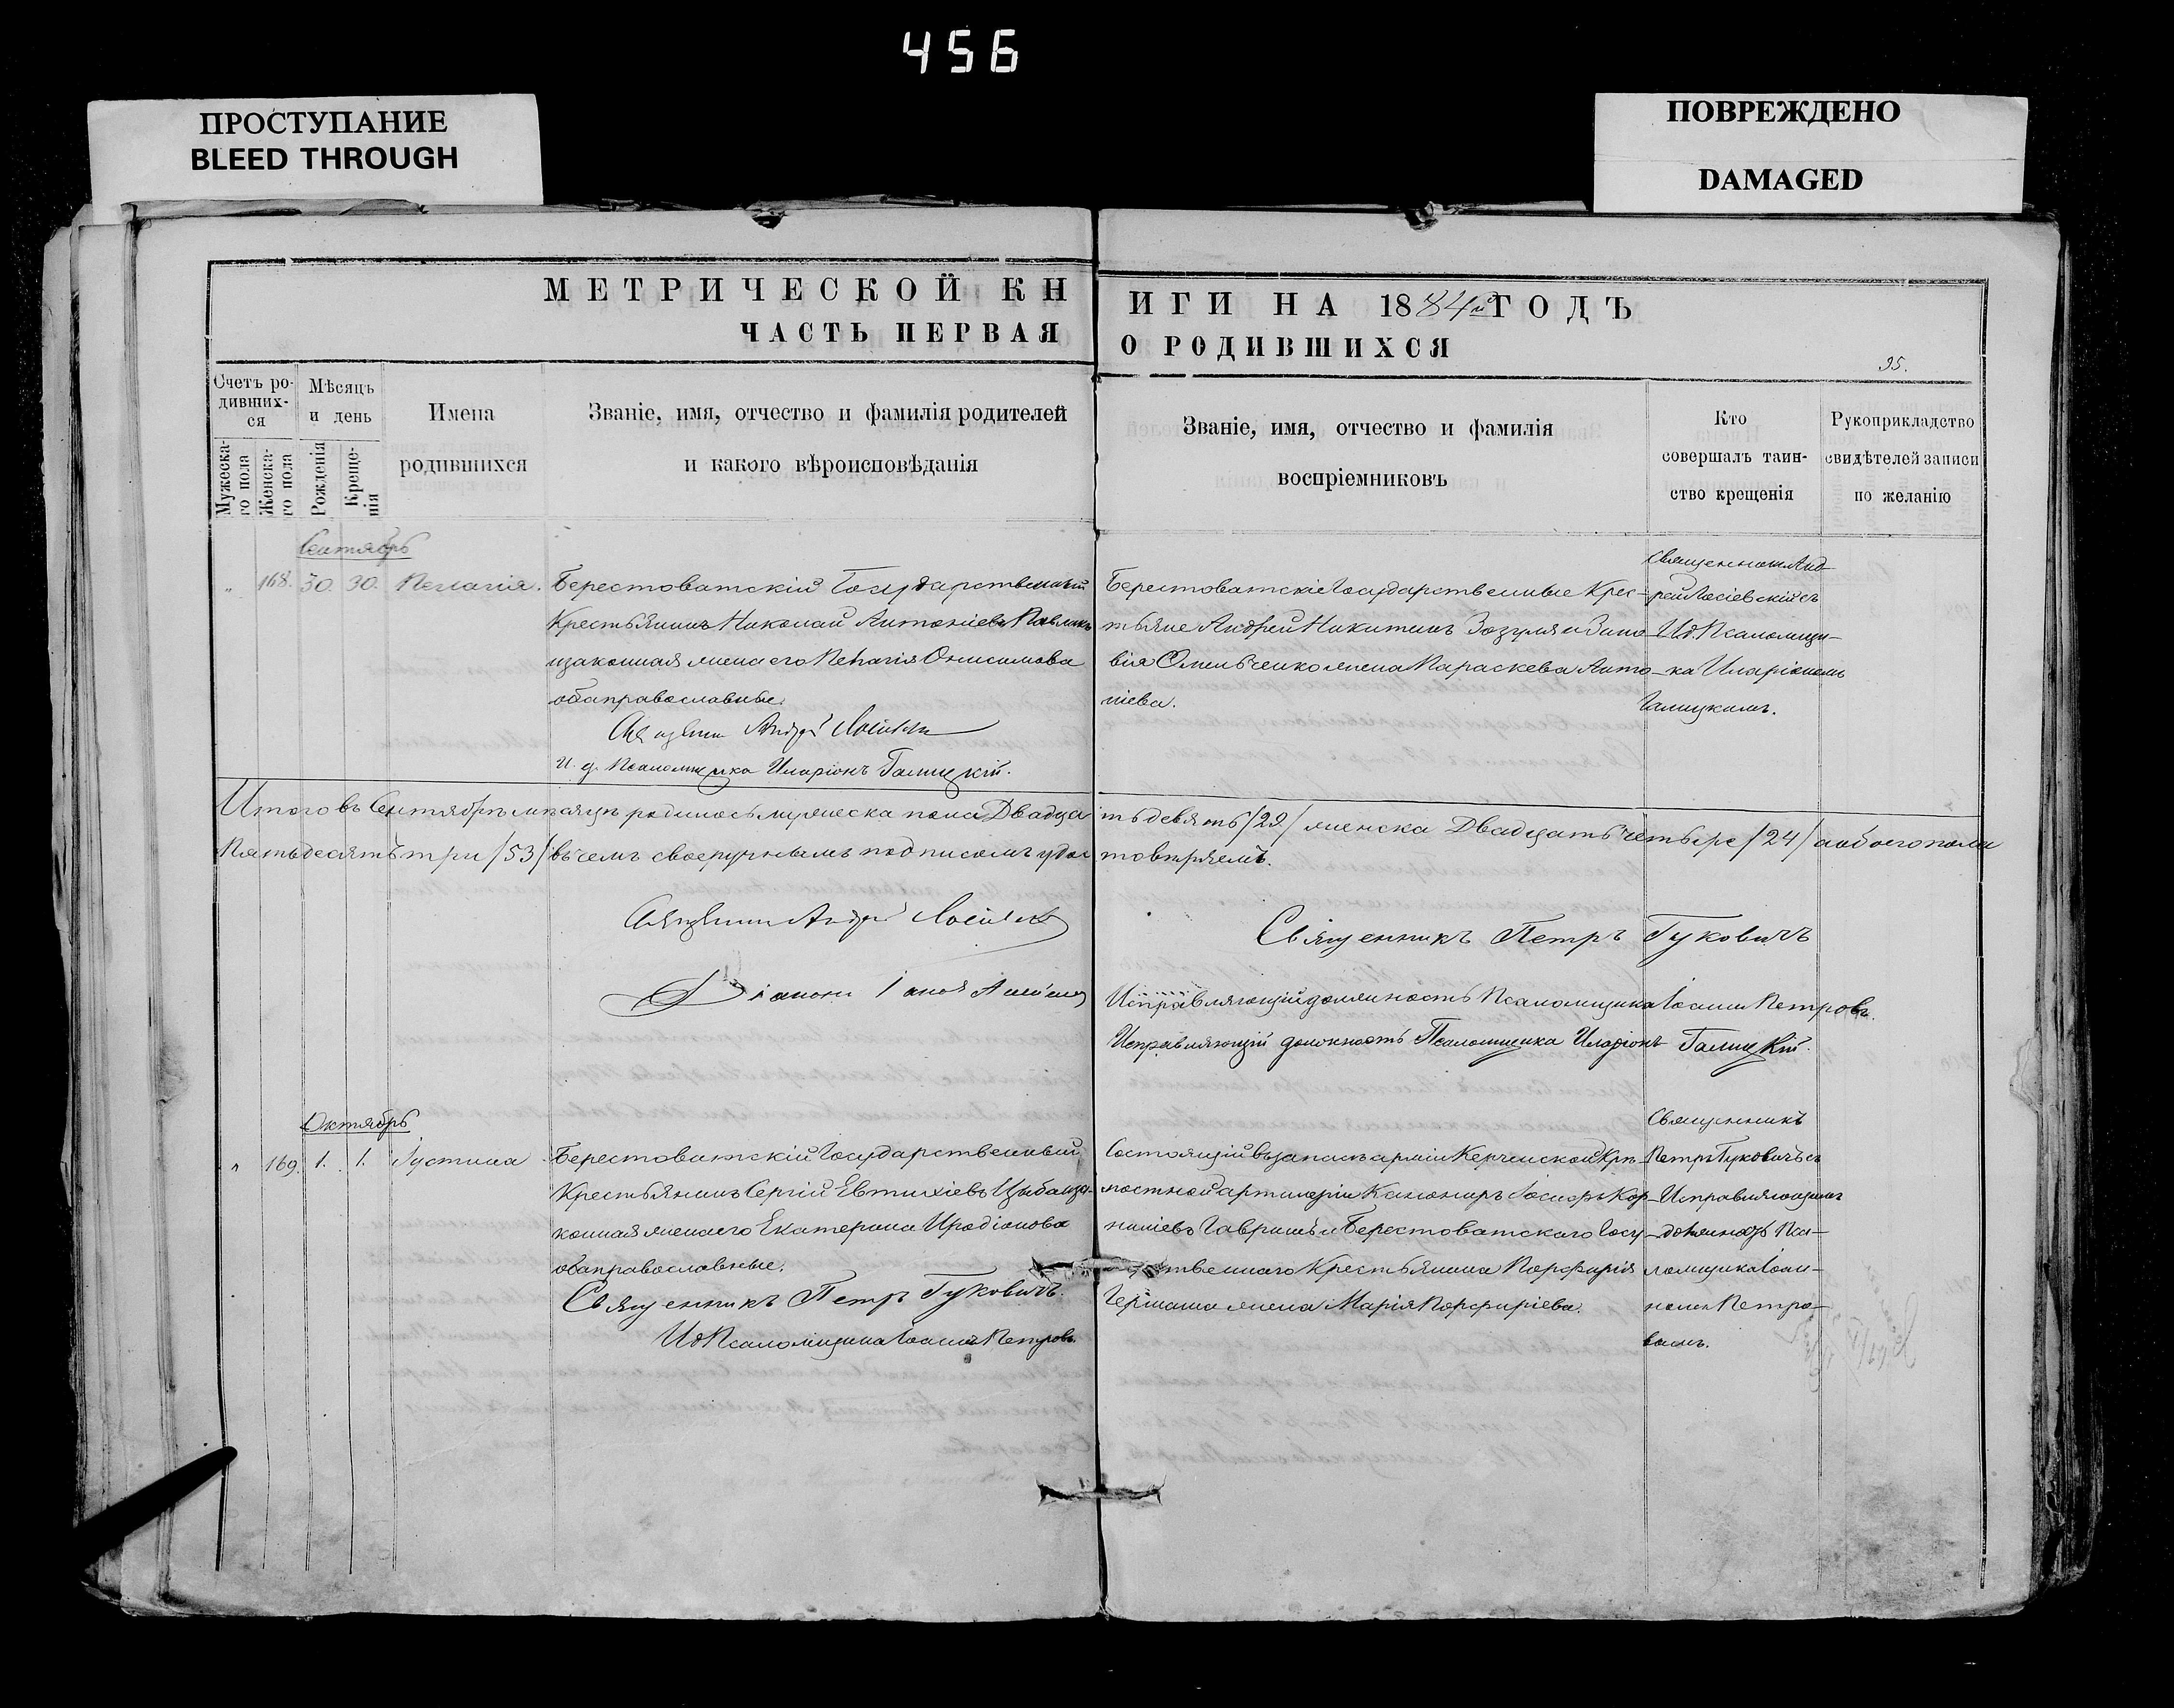 456
ПРОСТУПАНИЕ
BLEED THROUGH
ПОВРЕЖДЕНО
DAMAGED
МЕТРИЧЕСКОЙ КН
ЧАСТЬ ПЕРВАЯ
ИГИ НА 1884й ГОДЪ
О РОДИВШИХСЯ
95.
Счетъ ро-
дивших-
ся
Мужеска-
го пола
Женска-
го пола
Мѣсяцъ
и день
Рожденія
Креще-
нія
Имена
родившихся
Званіе, имя, отчество и фамилія родителей
и какого вѣроисповѣданія
Званіе, имя, отчество и фамилія
воспріемниковъ
Кто
совершалъ таин-
ство крещенія
Рукоприкладство
свидѣтелей записи
по желанію
Сентябрь
" 168. 30. 30. Пелагія.
Берестоватскій Государственный
Крестьянинъ Николай Антоніевъ Павликъ
изаконная жена его Пелагія Онисимова
обаправославные.
Священник Андрей
И. д. Псаломщика Иларіонъ Галицкій.
Берестоватскіе Государственные Крес-
тьяне Андрей Никитинъ Зозуля и Зино-
вія Омельченко жена Параскева Анто-
ніева.
Священникъ Анд-
рей Лосіевскій съ
И.д. Псаломщи-
ка Иларіономъ
Галицкимъ.
Итого въ Сентябрѣ мѣсяцѣ родилось мужеска пола Двадца
ть девять /29/ женска Двадцать четыре /24/ аобоего пола
Пятьдесятъ три /53/ въ чемъ своеручнымъ подписомъ удос
товѣряемъ.
Священник Андрей
Діаконъ
Священникъ Петръ Гуковичъ
Исправляющій должность Псаломщика Іоаннъ Петровъ.
Исправляющій должность Псаломщика Иларіонъ Галицкій.
Октябрь
" 169. 1. 1. Іустина
Берестоватскій Государственный
Крестьянинъ Сергій Евтихіевъ Цыбаиза-
конная женаего Екатерина Иродіонова
обаправославные.
Священникъ Петръ Гуковичъ.
И.д. Псаломщика Іоаннъ Петровъ.
Состоящій въ запасѣ арміи Керченской Крѣ-
постной артилеріи Канониръ Іосифъ Кор-
ниліевъ Гавришъ и Берестоватскаго Госу-
ственнаго Крестьянина Порфирія
жена Марія Порфиріева.
Священникъ
Петръ Гуковичъ съ
Исправляющимъ
должность Пса-
ломщика Іоан-
номъ Петро-
вымъ.